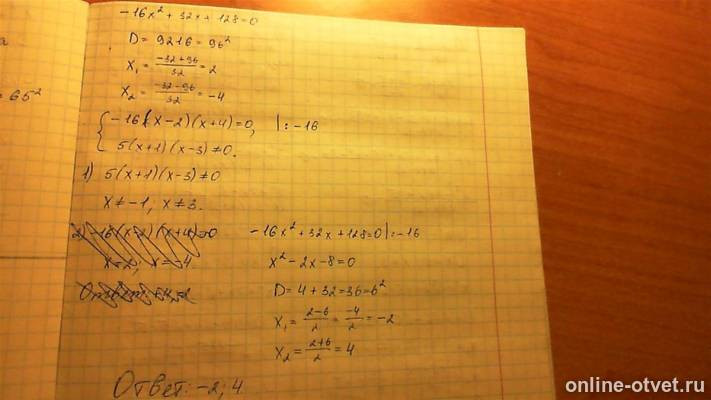 -16x² + 32x + 128 = 0
= 65²
D = 9216 = 96²
x₁ = (-32+96)/32 = 2
x₂ = (-32-96)/32 = -4
{ -16(x-2)(x+4)=0, |:-16
5(x+1)(x-3)≠0.
1) 5(x+1)(x-3)≠0
x≠-1, x≠3.
2) -16(x-2)(x+4)=0
x=2, x=-4
-16x² + 32x + 128 = 0 |:-16
x² - 2x - 8 = 0
D = 4 + 32 = 36 = 6²
x₁ = (2-6)/2 = -4/2 = -2
x₂ = (2+6)/2 = 4
Ответ: -2; 4.
online-otvet.ru